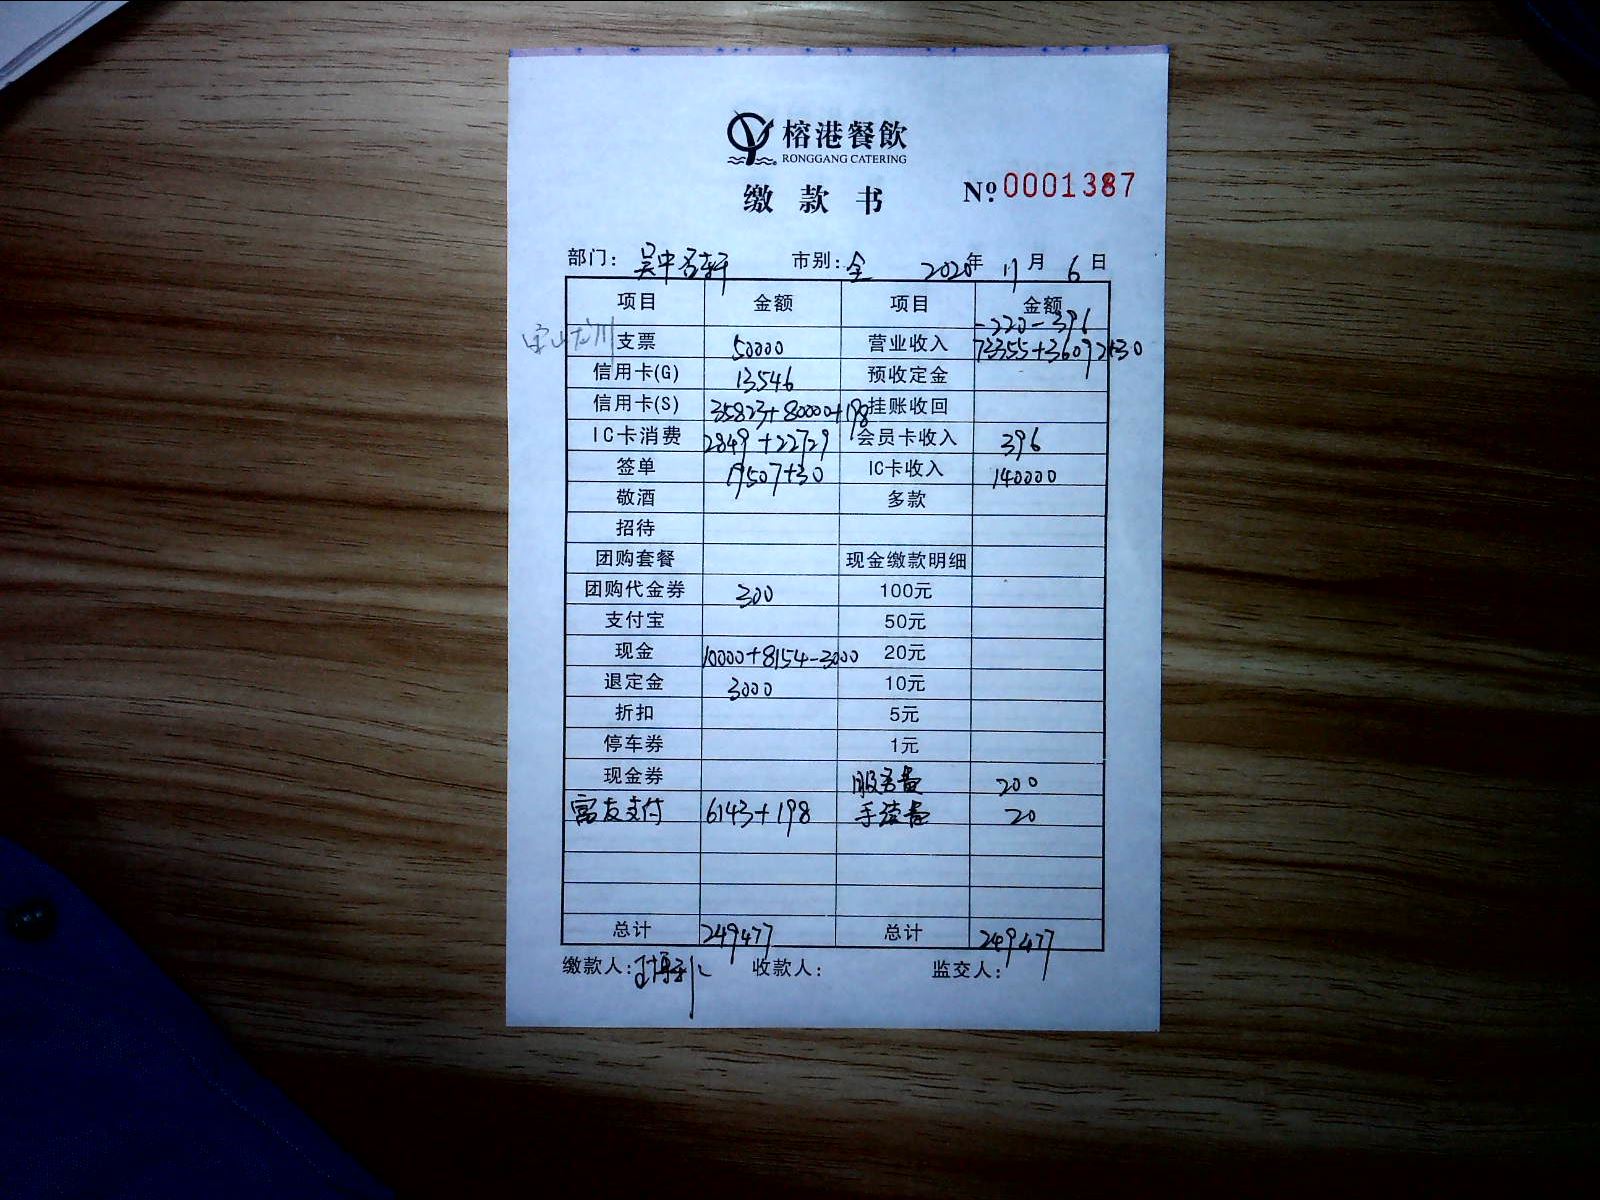 榕港餐飲
RONGGANG CATERING
缴款书 №0001387
部门: 吴中名轩 市别: 全 2020年 11月 6日
项目 金额 项目 金额
-220-396
支票 50000 营业收入 73355+36092+30
信用卡(G) 13546 预收定金
信用卡(S) 35823+80000+198 挂账收回
IC卡消费 2849+22729 会员卡收入 396
签单 19507+30 IC卡收入 140000
敬酒 多款
招待
团购套餐 现金缴款明细
团购代金券 300 100元
支付宝 50元
现金 10000+8154-3000 20元
退定金 3000 10元
折扣 5元
停车券 1元
现金券 服务费 200
富友支付 6143+198 手续费 20
总计 249477 总计 249477
缴款人: 收款人: 监交人: